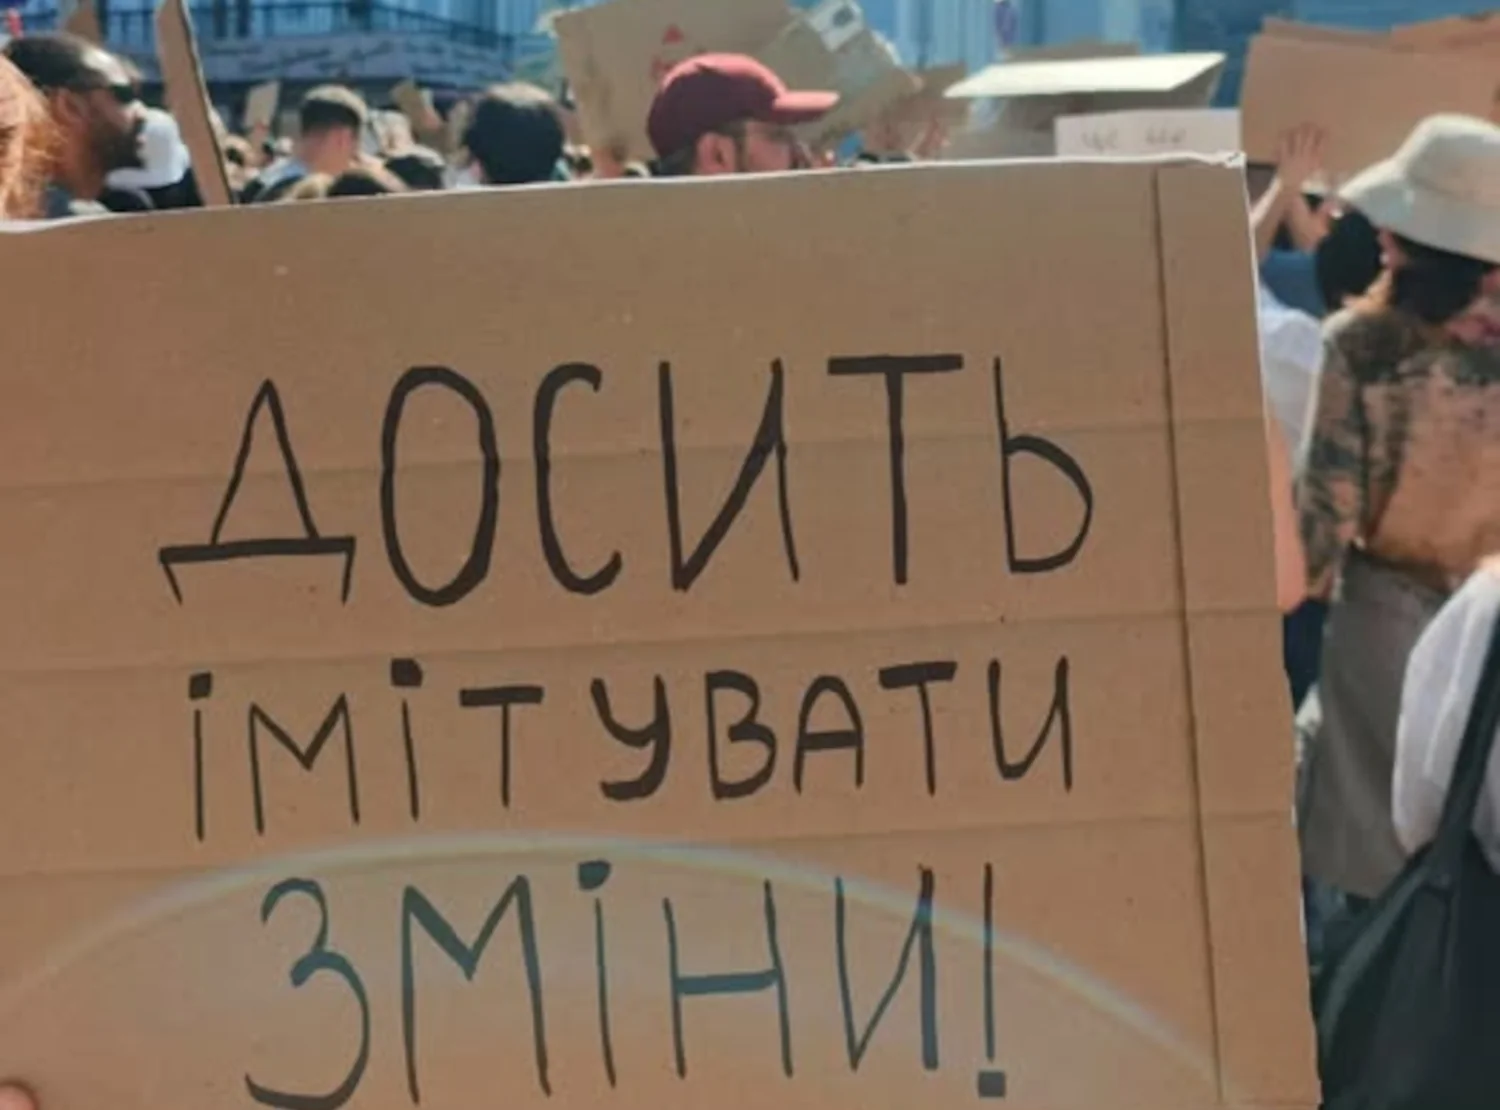 ДОСИТЬ
ІМІТУВАТИ
ЗМІНИ!